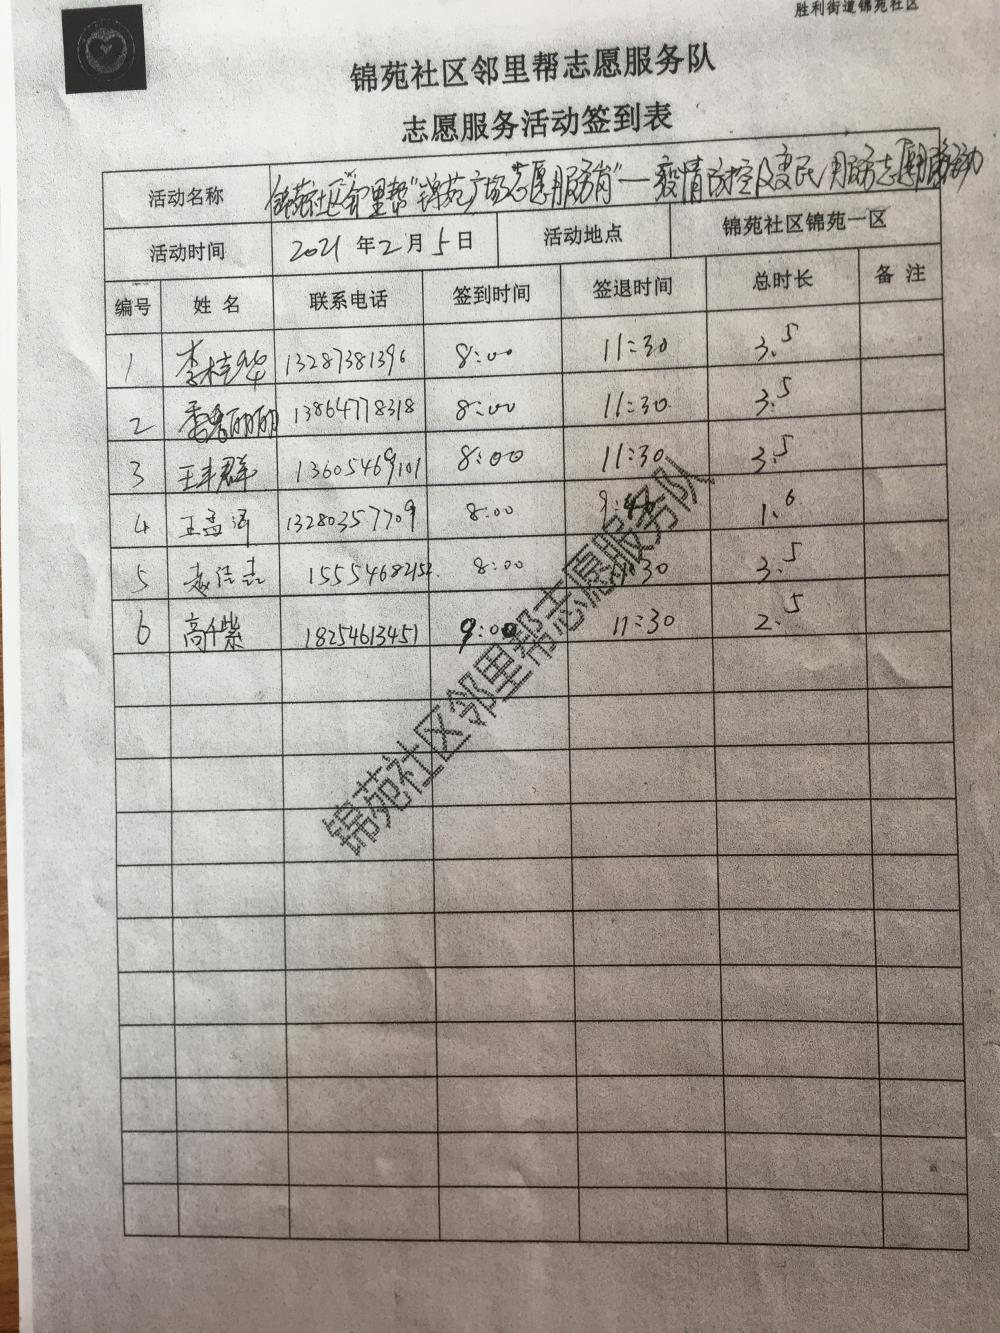 胜利街道锦苑社区
锦苑社区邻里帮志愿服务队
志愿服务活动签到表
活动名称 锦苑社区邻里帮"锦苑广场志愿服务岗"—疫情防控及便民服务志愿服务活动
活动时间 2021年2月5日 活动地点 锦苑社区锦苑一区
编号 姓名 联系电话 签到时间 签退时间 总时长 备注
1 李桂华 13287381396 8:00 11:30 3.5
2 丽丽 13864778318 8:00 11:30 3.5
3 王丰群 13605469101 8:00 11:30 3.5
4 王孟 13280357709 8:00 1.6
5 15554682152 8:00 11:30 3.5
6 高千紫 18254613451 9:00 11:30 2.5
锦苑社区邻里帮志愿服务队